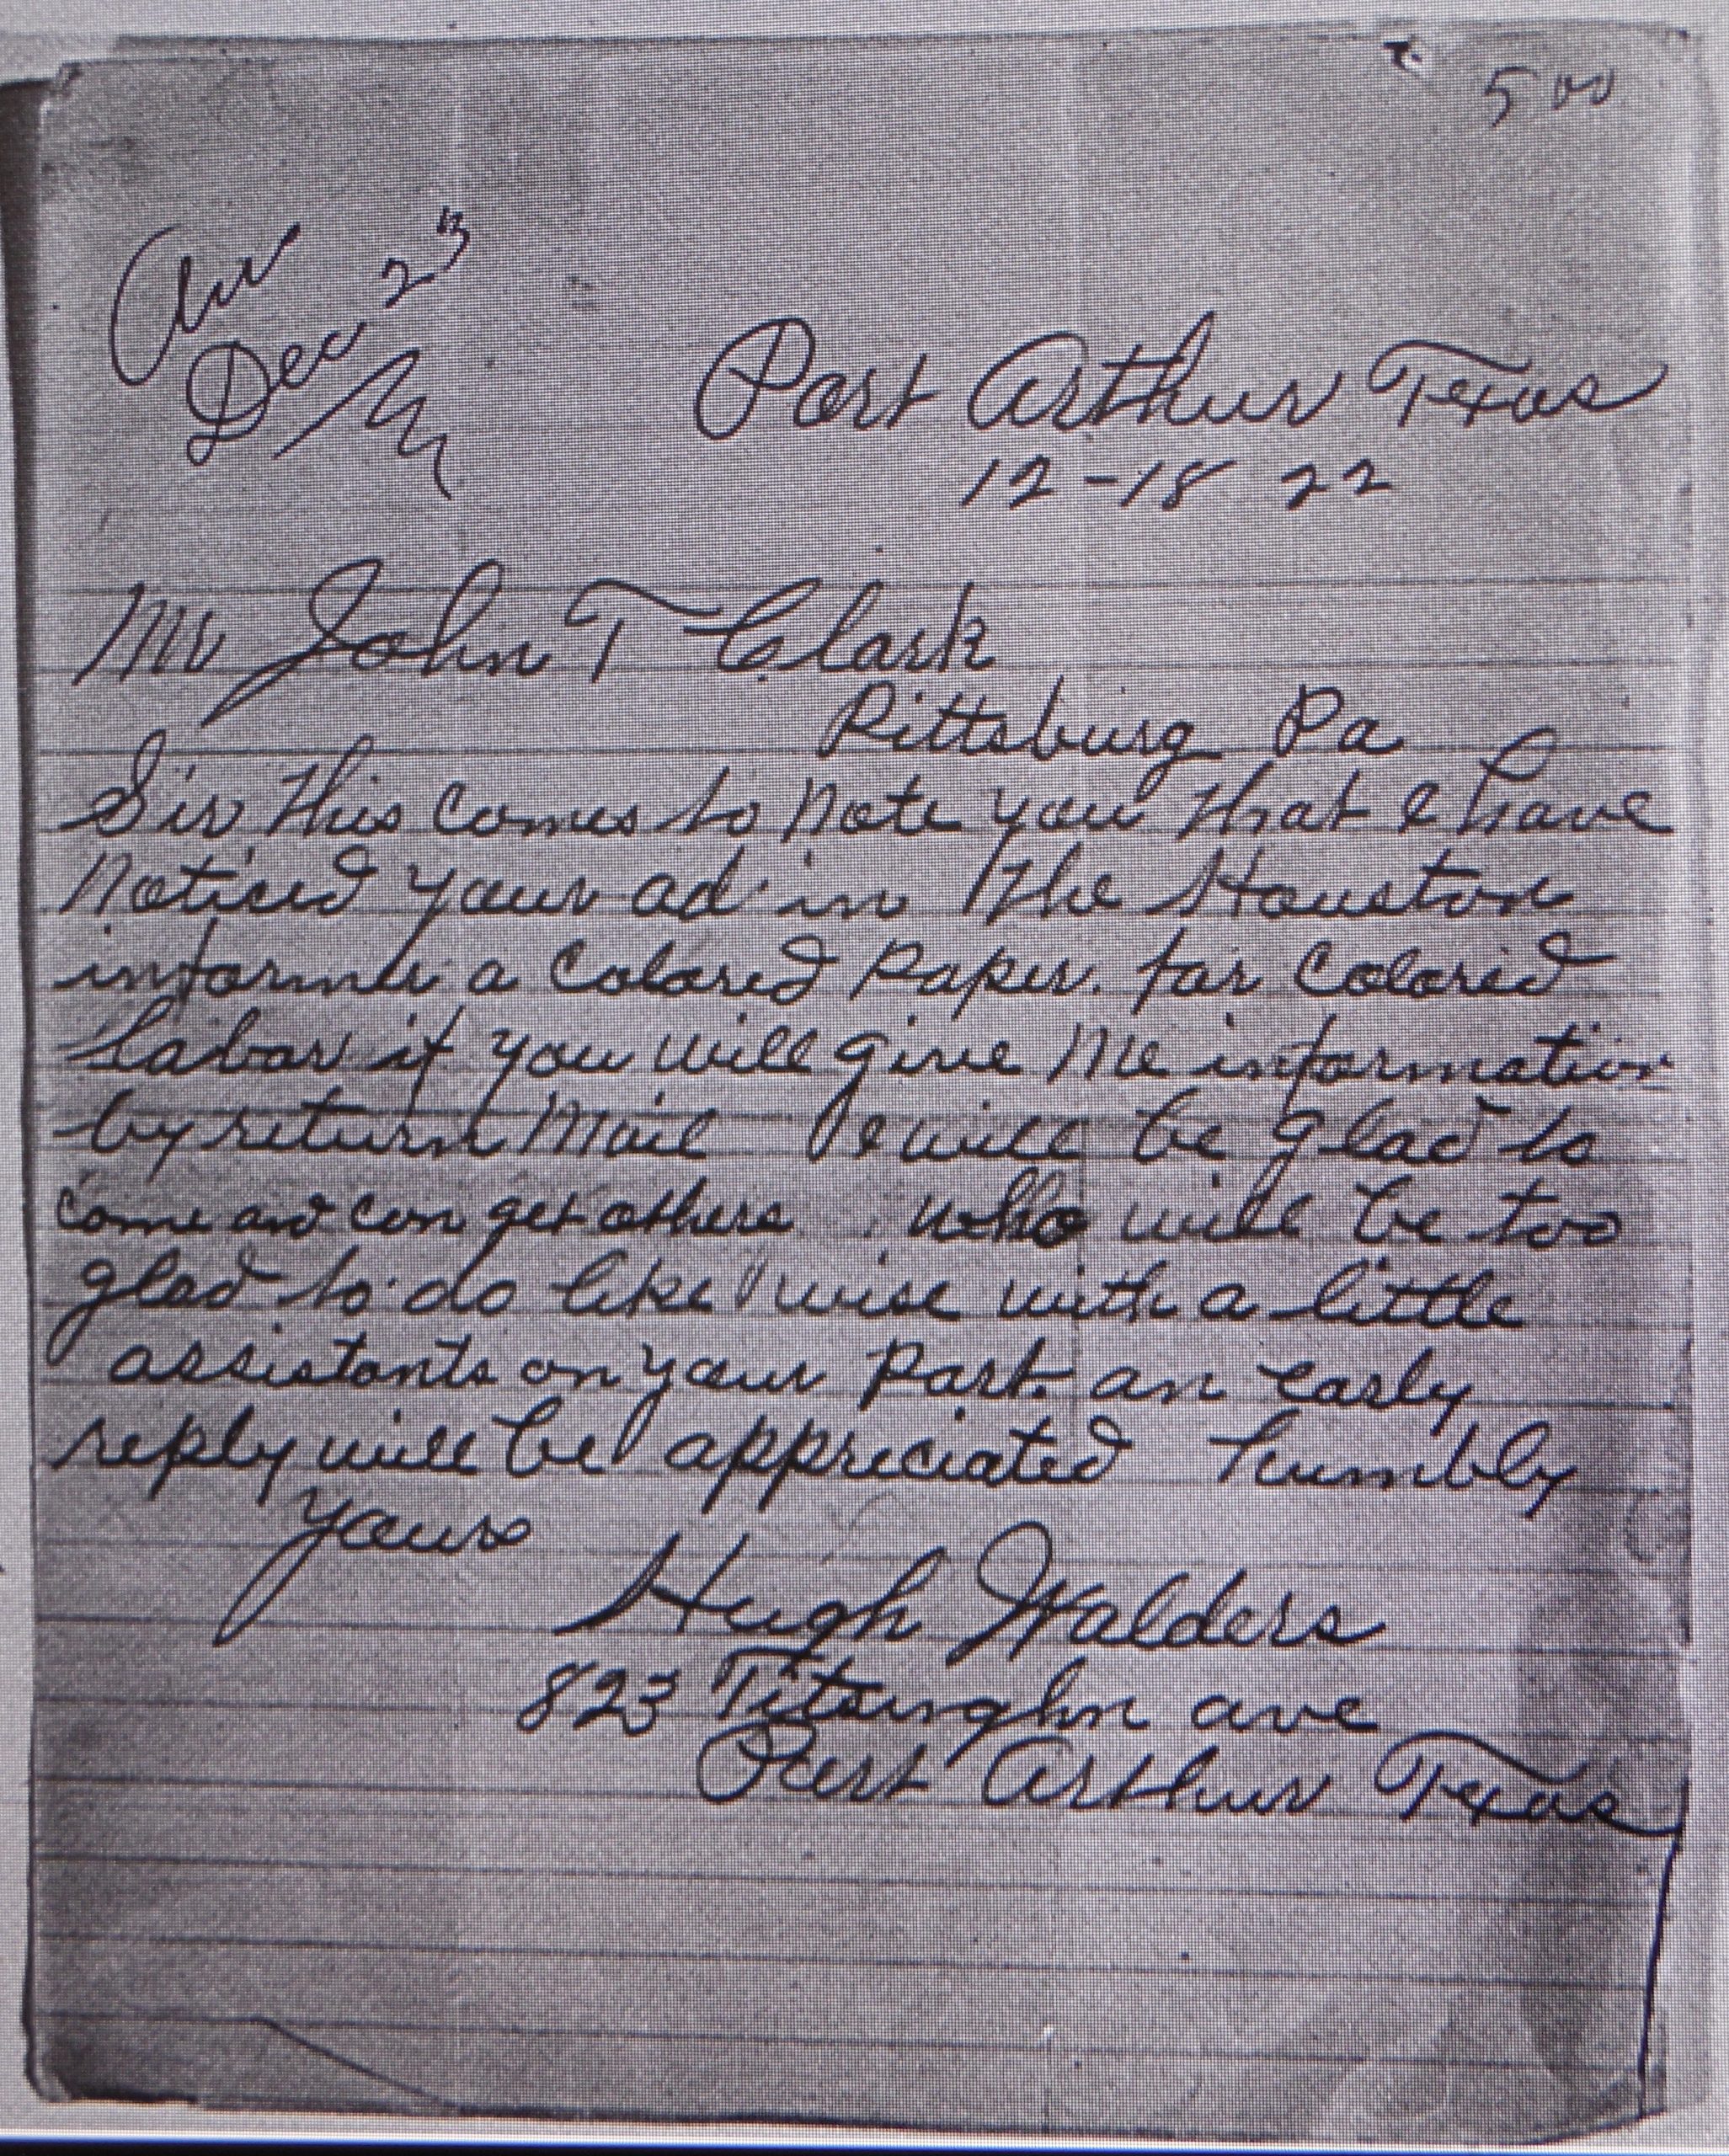 5 00
Dec 23
Port Arthur Texas
12-18 22
Mr John T Clark
Pittsburg Pa
Sir this comes to note you that I have
noticed your ad in the Houston
informer a Colored paper. for Colored
labor if you will give me information
by return mail I will be glad to
come and can get others who will be too
glad to do like wise with a little
assistants on your part. an early
reply will be appreciated humbly
yours
Hugh Walders
823 ave
Port Arthur Texas